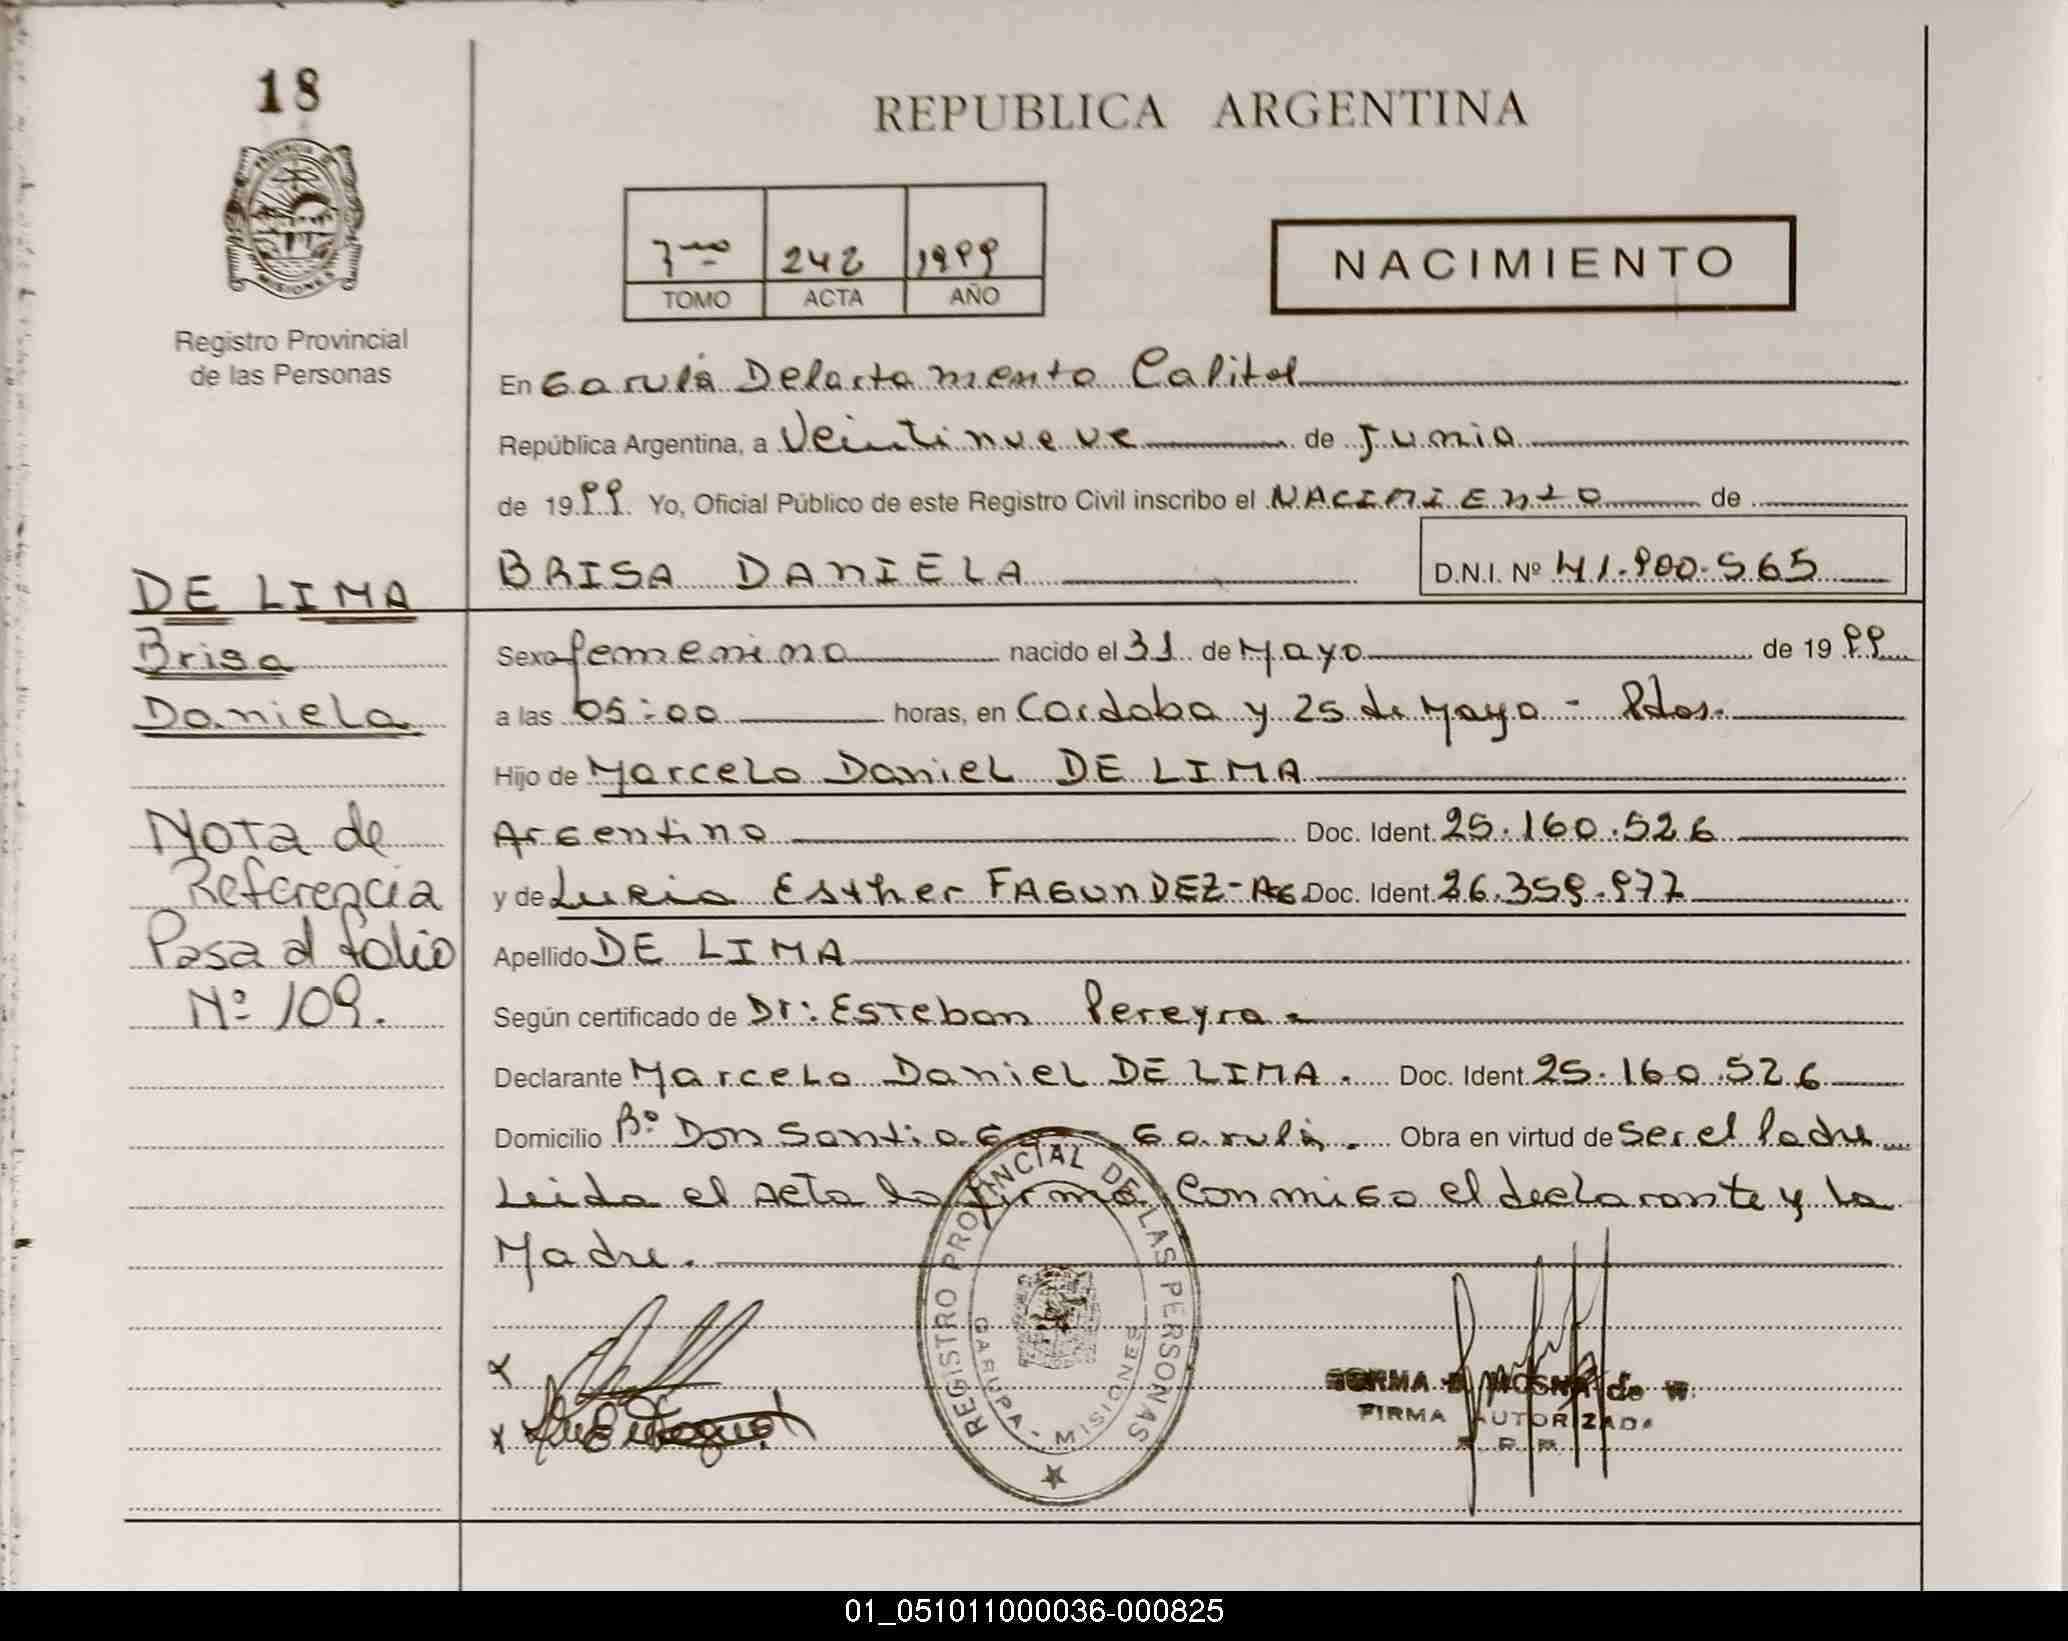 18
REPUBLICA ARGENTINA
PROVINCIA DE
MISIONES
Registro Provincial
de las Personas
242 1999
TOMO ACTA AÑO
NACIMIENTO
En Garupá Departamento Capital
República Argentina, a Veintinueve de Junio
de 1999. Yo, Oficial Público de este Registro Civil inscribo el NACIMIENTO de
BRISA DANIELA D.N.I. Nº 41.900.565
DE LIMA
Brisa
Daniela
Sexo femenino nacido el 31 de Mayo de 1999
a las 05:00 horas, en Cordoba y 25 de Mayo - Pdas.
Hijo de Marcelo Daniel DE LIMA
Argentino Doc. Ident. 25.160.526
y de Esther FAGUNDEZ-AG Doc. Ident. 26.359.977
Apellido DE LIMA
Según certificado de Dr: Esteban Pereyra
Declarante Marcelo Daniel DE LIMA. Doc. Ident. 25.160.526
Domicilio Bº Don Santiago Garupá. Obra en virtud de Ser el Padre
Leida el Acta la firma Conmigo el declarante y la
Madre.
Nota de
Referencia
Pasa al folio
Nº 109.
REGISTRO PROVINCIAL DE LAS PERSONAS
GARUPA - MISIONES
x
x
NORMA MOSNA de W.
FIRMA AUTORIZADA
01_051011000036-000825